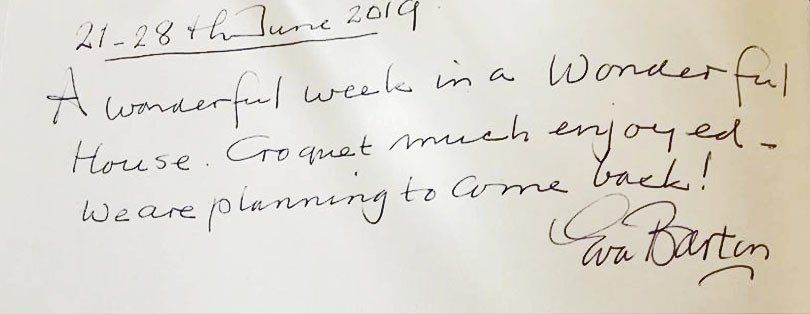 21-28th June 2019
A wonderful week in a Wonderful
House. Croquet much enjoyed -
We are planning to come back!
Eva Barton